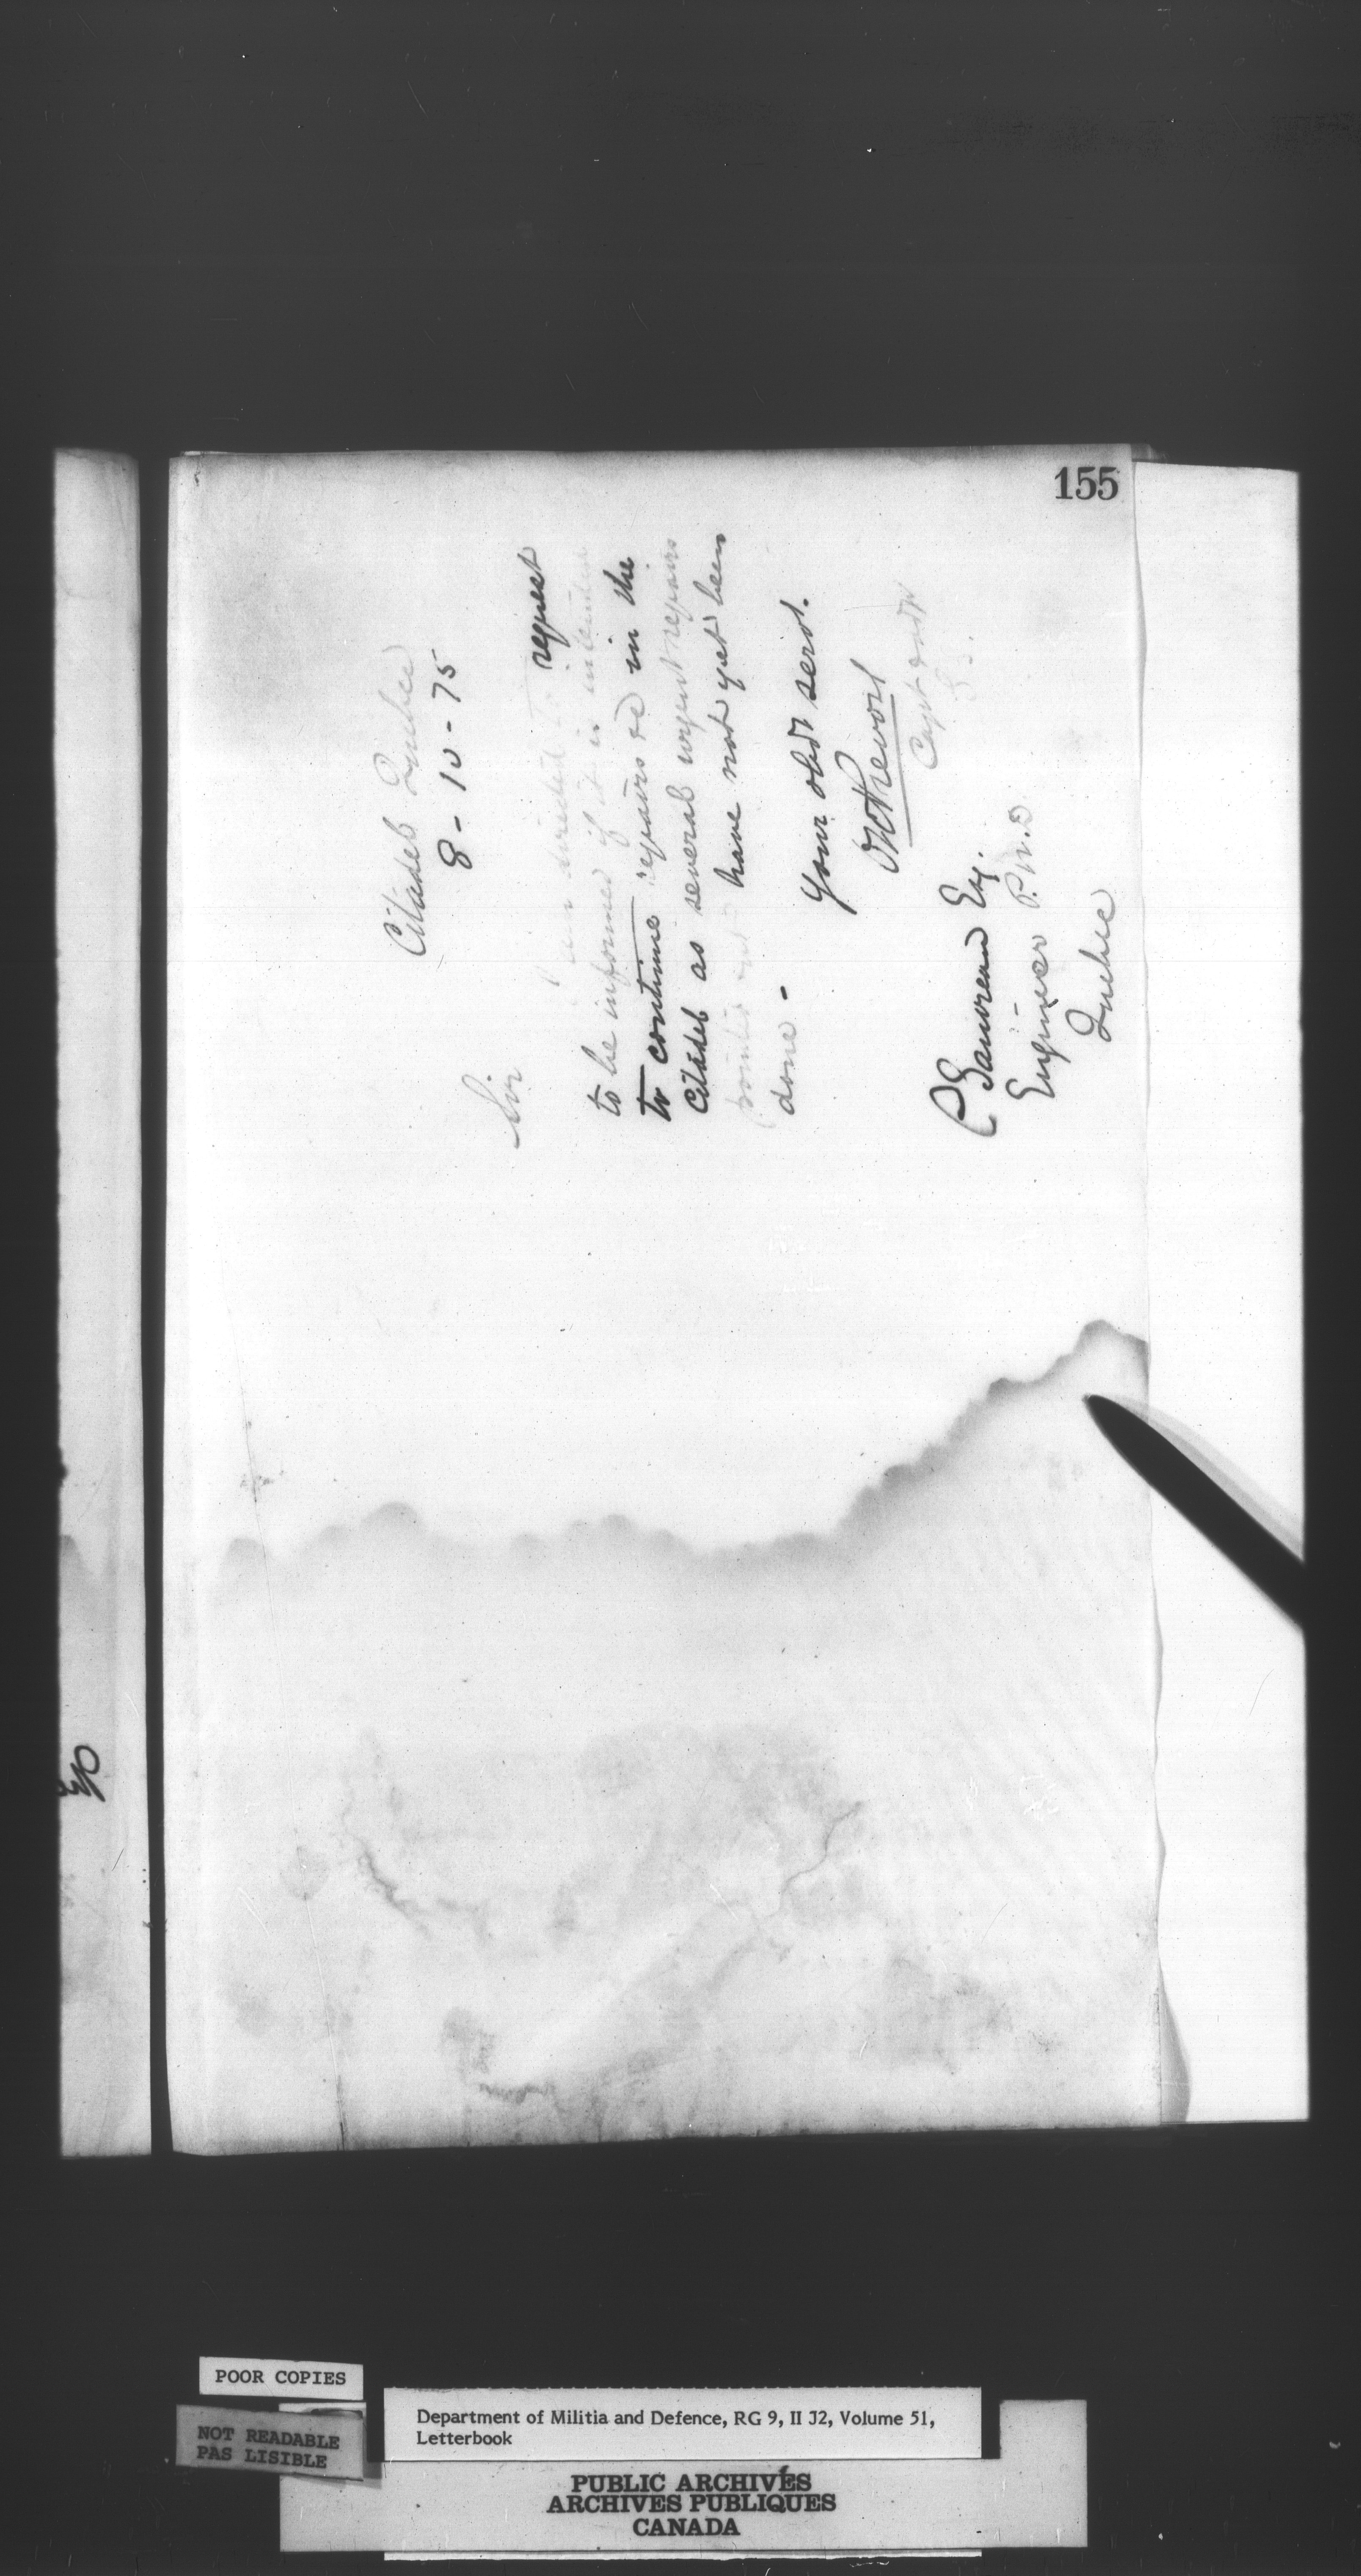 155
Citadel Quebec
8 - 10 - 75
Sir
I am directed to request
to be informed if it is intended
to continue repairs &c in the
Citadel as several urgent repairs
pointed out have not yet been
done -
Your obdt servt.
Capt &
P Esq.
Engineer P.W.D
Quebec
POOR COPIES
NOT READABLE
PAS LISIBLE
Department of Militia and Defence, RG 9, II J2, Volume 51,
Letterbook
PUBLIC ARCHIVES
ARCHIVES PUBLIQUES
CANADA